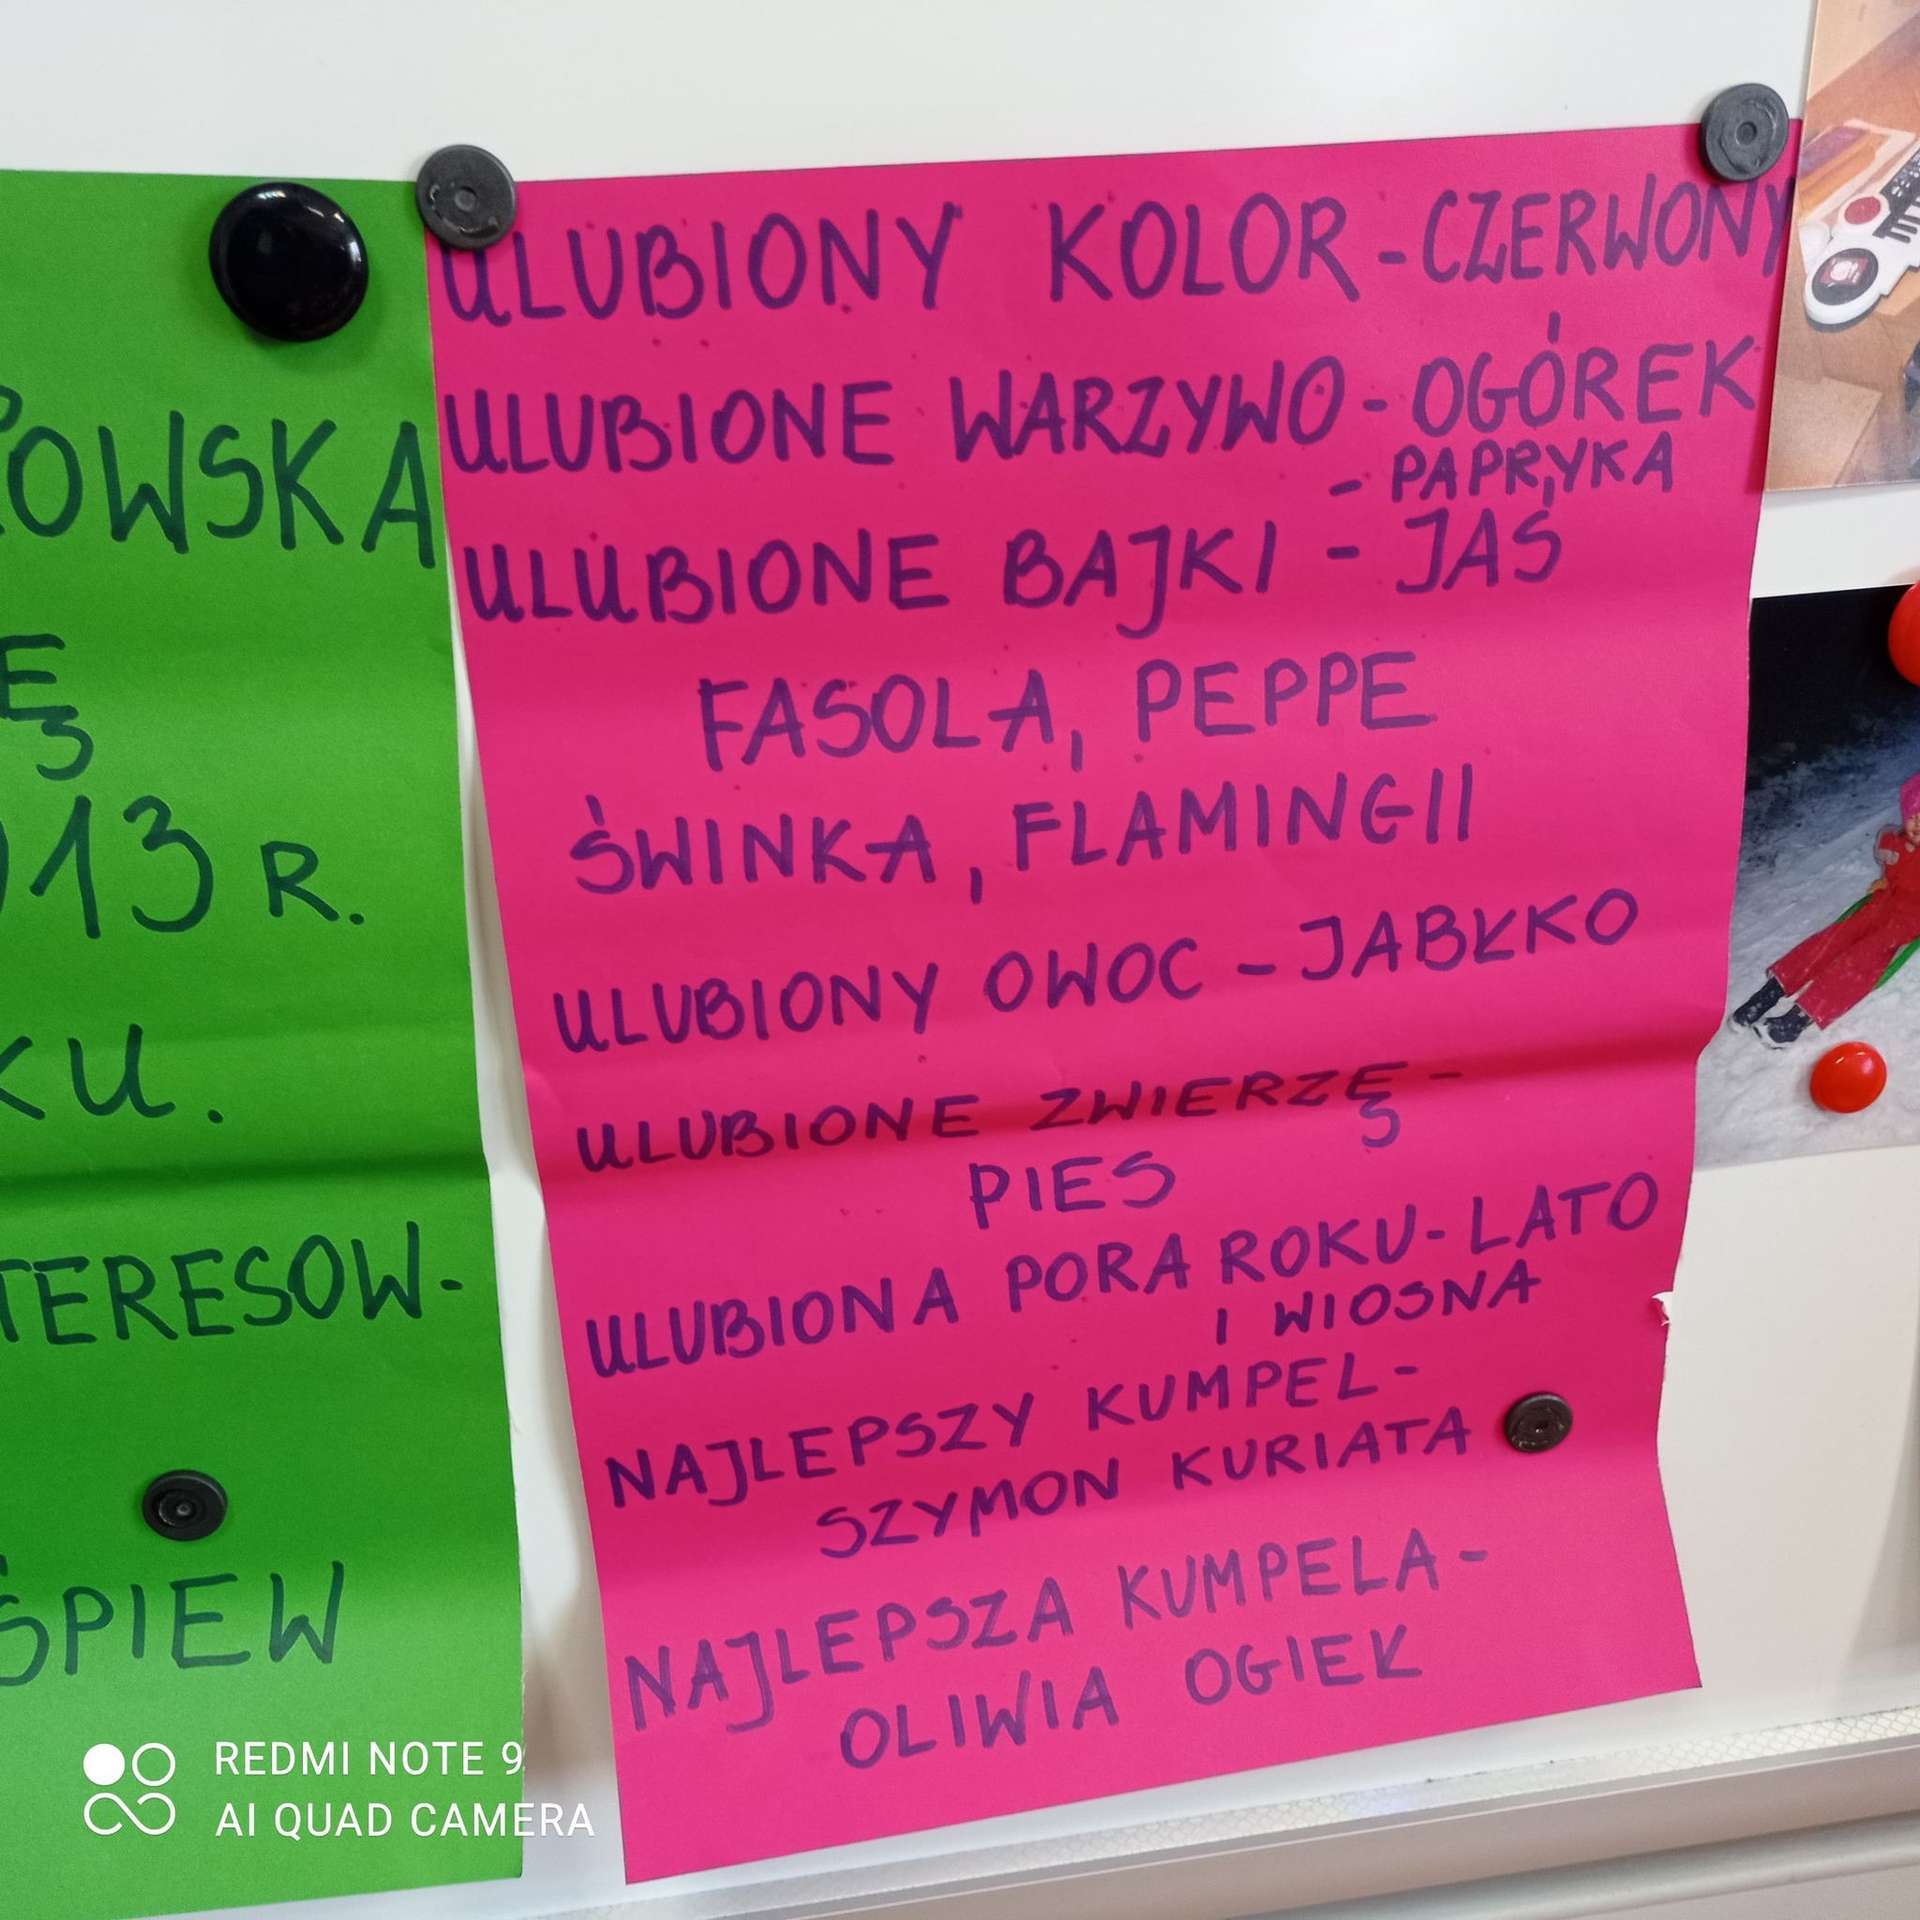 OWSKA
Ę
13 R.
KU.
TERESOW-
ŚPIEW
ULUBIONY KOLOR - CZERWONY
ULUBIONE WARZYWO - OGÓREK
- PAPRYKA
ULUBIONE BAJKI - JAŚ
FASOLA, PEPPE
ŚWINKA, FLAMINGII
ULUBIONY OWOC - JABŁKO
ULUBIONE ZWIERZĘ -
PIES
ULUBIONA PORA ROKU - LATO
I WIOSNA
NAJLEPSZY KUMPEL -
SZYMON KURIATA
NAJLEPSZA KUMPELA -
OLIWIA OGIEK
REDMI NOTE 9
AI QUAD CAMERA